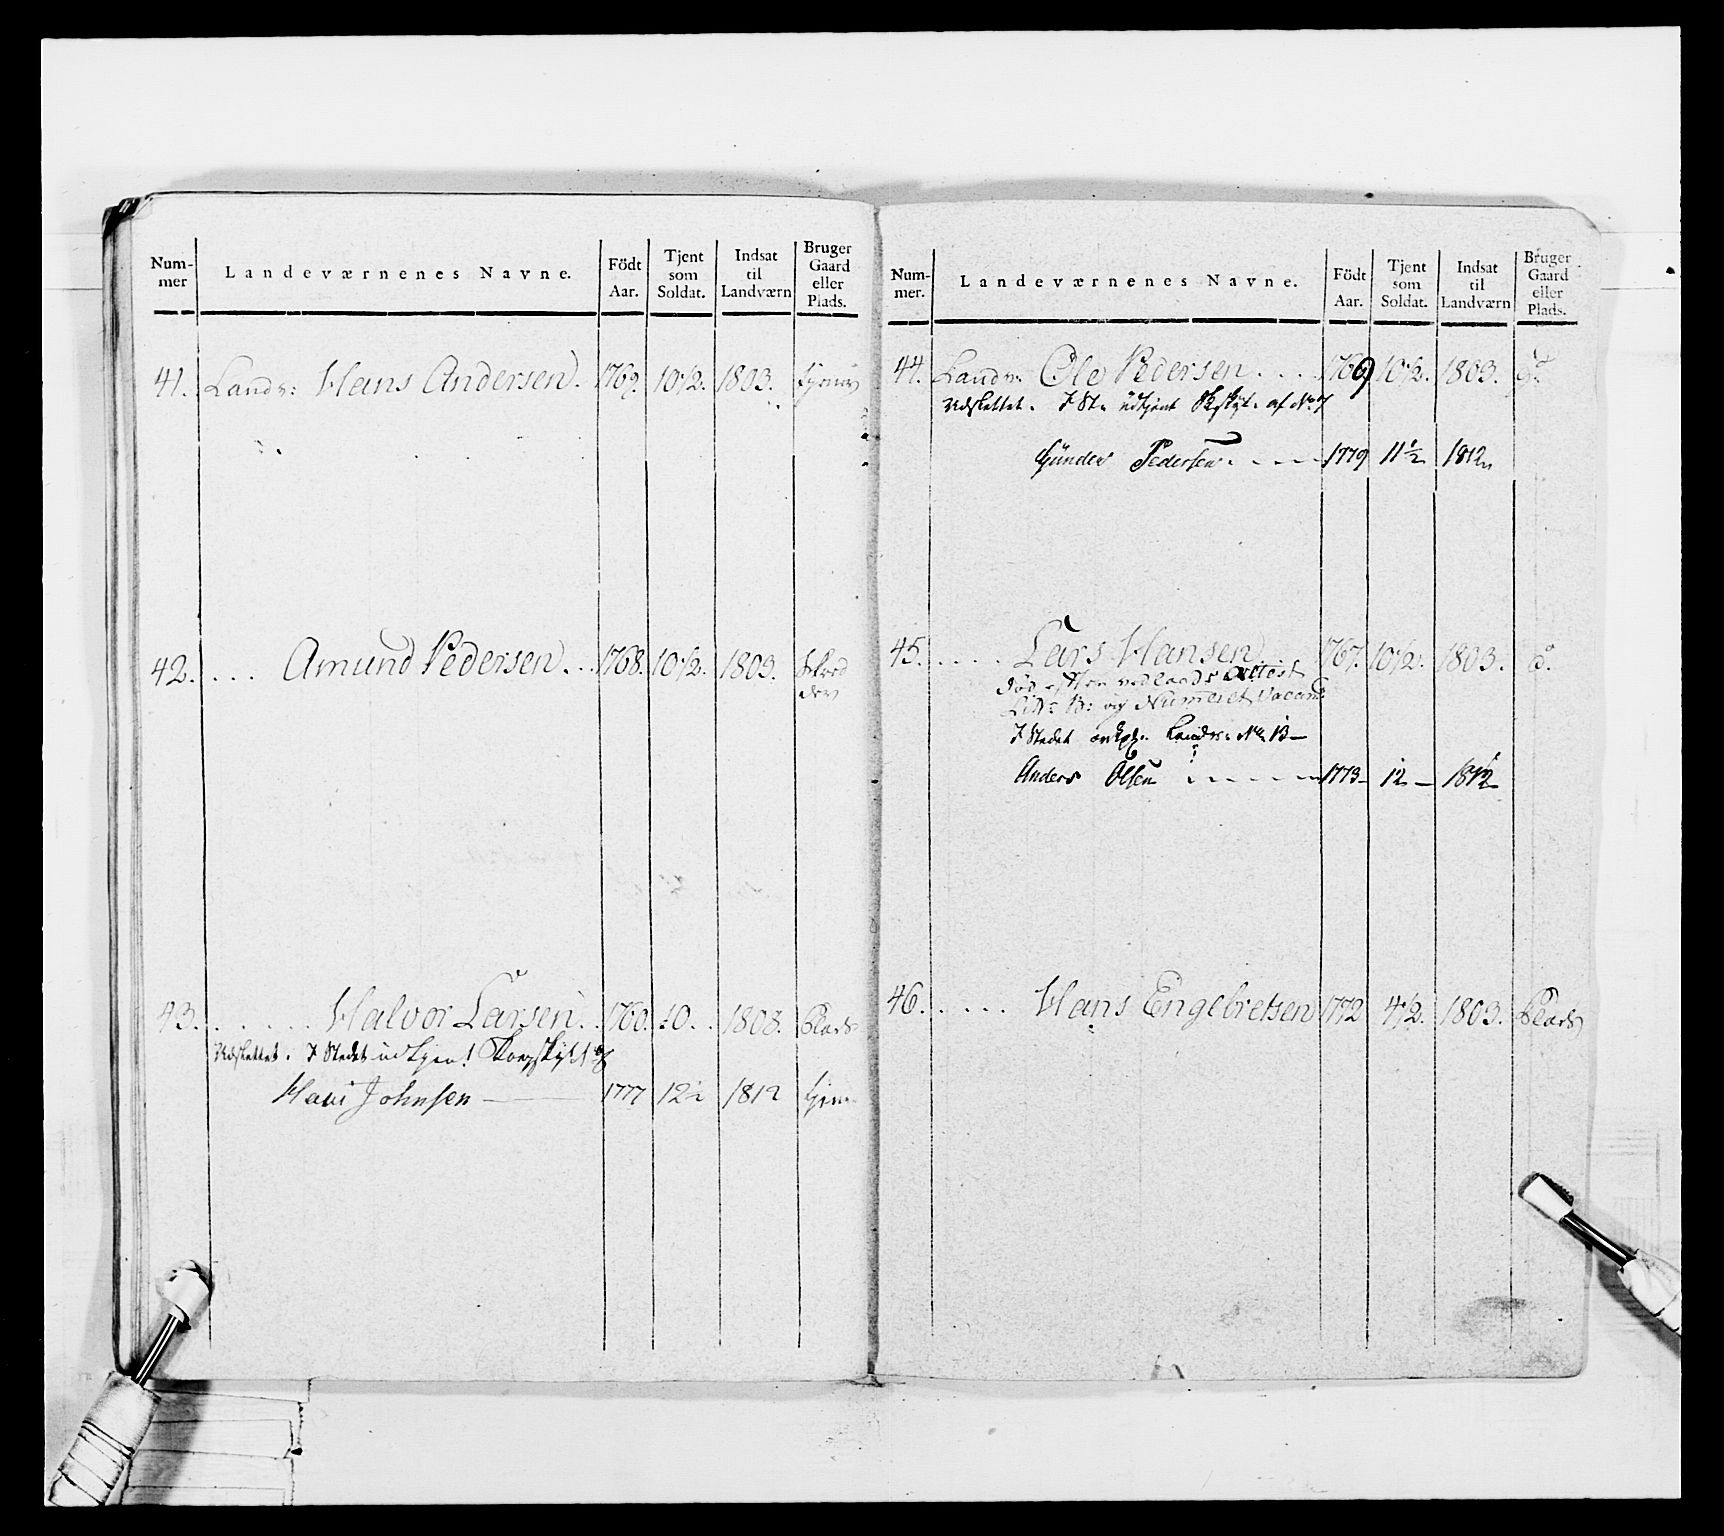 Num-mer Landeværnenes Navne. Födt Aar. Tjent som Soldat. Indsat til Landværn Bruger Gaard eller Plads.
41. Landv: Hans Andersen. 1769. 10 1/2. 1803.
42. . . . Amund Pedersen . . 1768. 10 1/2. 1803.
43. . . . . . . Halvor Larsen . . 1760. 10. . 1808. Plads
Udslettet. I Stedet udtjent
Hans Johnsen 1777 12 1812
Num-mer. Landeværnenes Navne. Födt Aar. Tjent som Soldat. Indsat til Landværn Bruger Gaard eller Plads.
44. Landv: Ole Pedersen . . . . 1769 10 1/2. 1803. do
Udslettet. I St: udtjent af No 7
Gunder Pedersen . . . . 1779 11 1/2 1812
45. . . . . . Lars Hansen 1767. 10 1/2. 1803. do
død efter vedlagde Attest
Litr: B: og Numeret Vacant
I Stedet Landv: No 13 —
Anders Olsen . . . . . 1773 — 12 — 1812
46. . . . . . Hans Engebretsen 1772 4 1/2. 1803. Plads